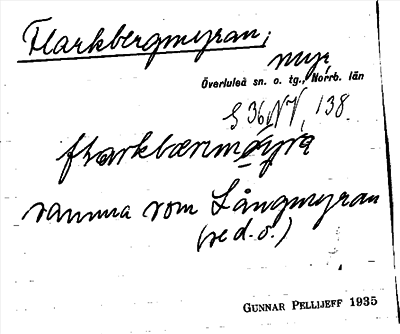 Flarkbergmyran;
myr,
Överluleå sn. o. tg., Norrb. län
S 36 NV, 138.
samma som Långmyran
(se d. o.)
GUNNAR PELLIJEFF 1935